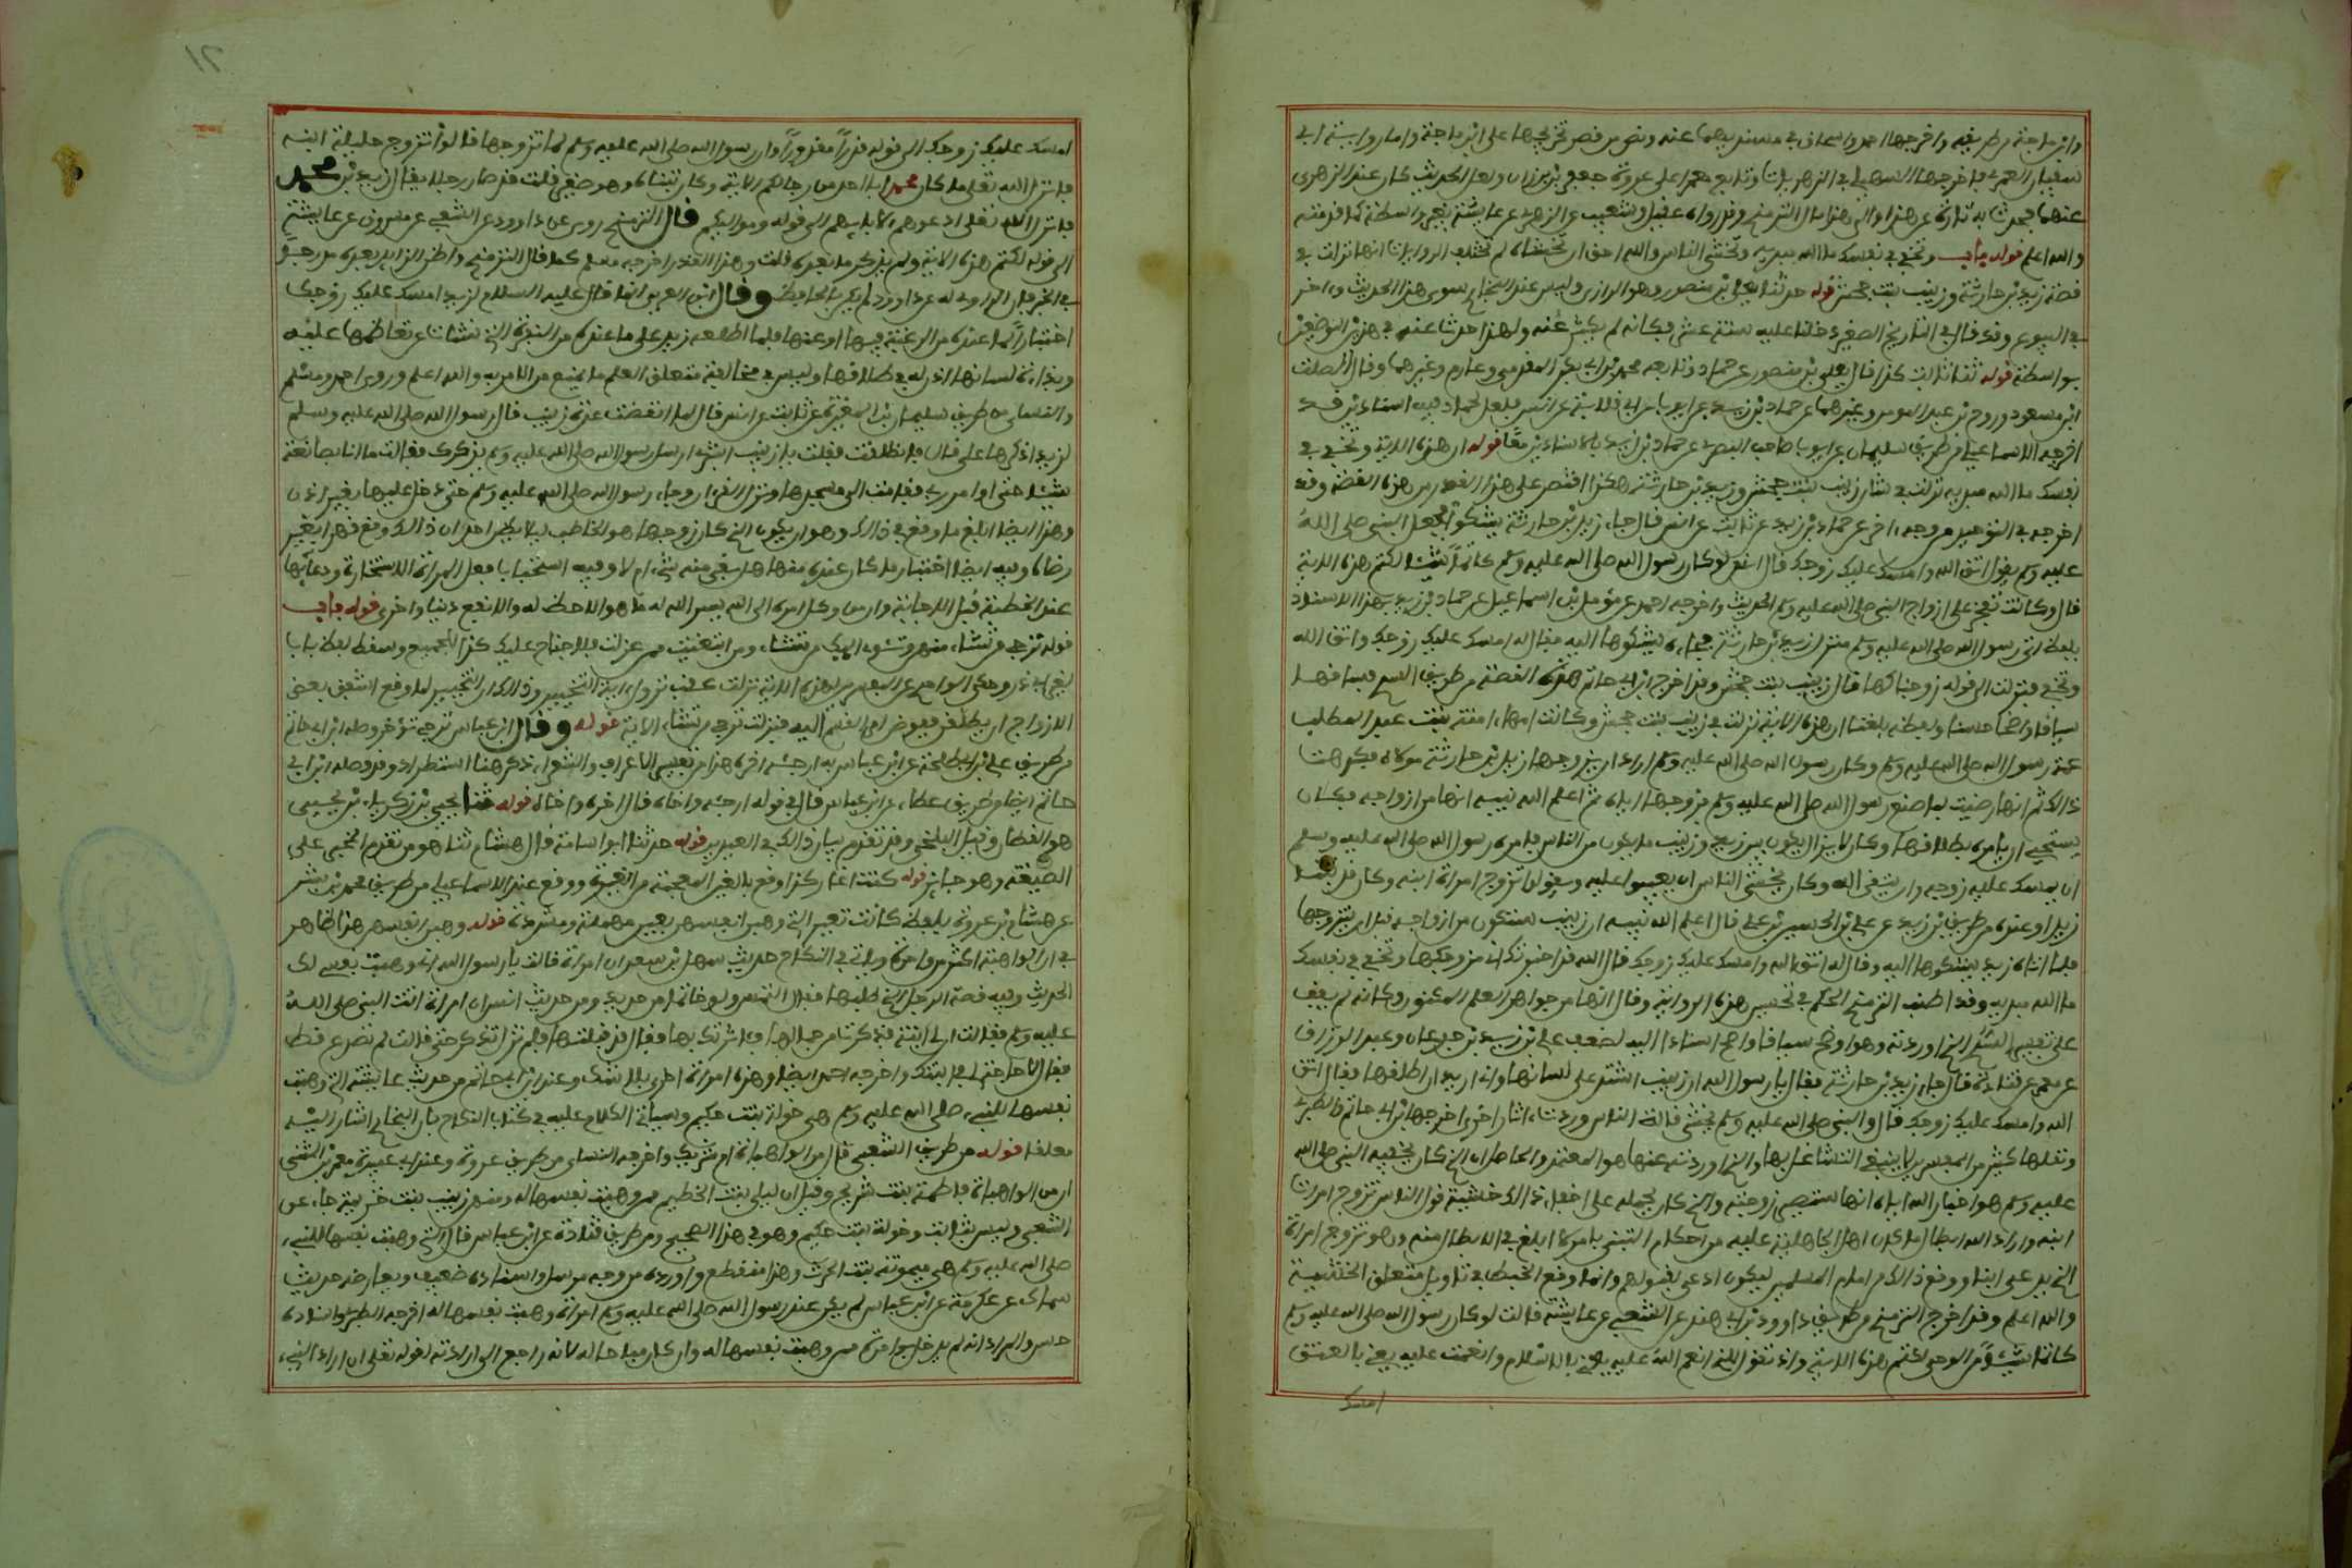 وابن ماجة من طريقه واخرجها احمد واسحاق في مسنديهما عنه وقصر من قصر تخريجها على ابن ماجة واما رواية ابي
سفيان المعمري فاخرجها الذهلي في الزهريات وتابع معمرا على عروة جعفر بن برقان ولعل الحديث كان عند الزهري
عنهما فحدث به تارة عن هذا وتارة عن هذا والى هذا مال الترمذي وقد رواه عقيل وشعيب عن الزهري عن عايشة بغير واسطة كما قدمته
والله اعلم قوله باب وتخفي في نفسك ما الله مبديه وتخشى الناس والله احق ان تخشاه لم تختلف الروايات انها نزلت في
قصة زيد بن حارثة وزينب بنت جحش قوله حدثنا معلى بن منصور وهو الرازي وليس عند البخاري سوى هذا الحديث وءاخر
في البيوع وقد قال في التاريخ الصغير دخلنا عليه سنة عشر فكانه لم يكثر عنه ولهذا حدث عنه في هذين الموضعين
بواسطة قوله ثنا ثابت كذا قال معلى بن منصور عن حماد وتابعه محمد بن ابي بكر المقدمي وعارم وغيرهما وقال الصلت
ابن مسعود وروح بن عبد المومن وغيرهما عن حماد بن زيد عن ايوب عن ابي قلابة عن انس فلعل لحماد فيه اسنادين وقد
اخرجه الاسماعيلي من طريق سليمان بن ايوب صاحب البصري عن حماد بن زيد بالاسنادين معًا قوله ان هذه الاية وتخفي في
نفسك ما الله مبديه نزلت في شان زينب بنت جحش وزيد بن حارثة هكذا اقتصر على هذا القدر من هذه القصة وقد
اخرجه في التوحيد من وجه ءاخر عن حماد بن زيد عن ثابت عن انس قال جاء زيد بن حارثة يشكو فجعل النبي صلى الله
عليه وسلم يقول اتق الله وامسك عليك زوجك قال انس لو كان رسول الله صلى الله عليه وسلم كاتمًا شيئا لكتم هذه الاية
قال وكانت تفخر على ازواج النبي صلى الله عليه وسلم الحديث واخرجه احمد عن مؤمل بن اسماعيل عن حماد بن زيد بهذا الاسناد
بلفظ اتى رسول الله صلى الله عليه وسلم منزل زيد بن حارثة فجاءه يشكوها اليه فقال له امسك عليك زوجك واتق الله
وتخفي فنزلت الى قوله زوجناكها قال زينب بنت جحش وقد اخرج ابن ابي حاتم هذه القصة من طريق السدي فساقها
سياقا واضحا حسنا ولفظه بلغنا ان هذه الاية نزلت في زينب بنت جحش وكانت امها اميمة بنت عبد المطلب
عمة رسول الله صلى الله عليه وسلم وكان رسول الله صلى الله عليه وسلم اراد ان يزوجها زيد بن حارثة مولاه فكرهت
ذالك ثم انها رضيت بما صنع رسول الله صلى الله عليه وسلم فزوجها اياه ثم اعلم الله نبيه انها من ازواجه فكان
يستحيي ان يامره بطلاقها وكان لا يزال يكون بين زيد وزينب ما يكون من الناس فامره رسول الله صلى الله عليه وسلم
ان يمسك عليه زوجه وان يتقي الله وكان يخشى الناس ان يعيبوا عليه ويقولوا تزوج امراة ابنه وكان قد تبنى
زيدا وعنده من طريق بن زيد عن علي بن الحسين بن علي قال اعلم الله نبيه ان زينب ستكون من ازواجه قبل ان يتزوجها
فلما اتاه زيد يشكوها اليه وقال له اتق الله وامسك عليك زوجك قال الله قد اخبرتك اني مزوجكها وتخفي في نفسك
ما الله مبديه وقد اطنب الترمذي الحكيم في تحسين هذه الرواية وقال انها من جواهر العلم المكنون وكانه لم يقف
على تفسير السدي الذي اوردته وهو اوضح سياقا واصح اسنادا اليه لضعف علي بن زيد بن جدعان وعبد الرزاق
عن معمر عن قتادة قال جاء زيد بن حارثة فقال يا رسول الله ان زينب اشتد علي لسانها واني اريد ان اطلقها فقال اتق
الله وامسك عليك زوجك قال والنبي صلى الله عليه وسلم يخشى قالة الناس ووردت ءاثار اخرى اخرجها ابن ابي حاتم والطبري
ونقلها كثير من المفسرين لا ينبغي التشاغل بها والذي اوردته منها هو المعتمد والحاصل ان الذي كان يخفيه النبي صلى الله
عليه وسلم هو اخبار الله اياه انها ستصير زوجته والذي كان يحمله على اخفاء ذالك خشية قول الناس تزوج امراة
ابنه واراد الله ابطال ما كان اهل الجاهلية عليه من احكام التبني بامر لا ابلغ في الابطال منه وهو تزوج امراة
الذي يدعى ابنا ووقوع ذالك من امام المسلمين ليكون ادعى لقبولهم وانما وقع الخبط في تاويل متعلق الخشية
والله اعلم وقد اخرج الترمذي من طريق داوود بن ابي هند عن الشعبي عن عايشة قالت لو كان رسول الله صلى الله عليه وسلم
كاتما شيئا من الوحي لكتم هذه الاية واذ تقول للذي انعم الله عليه يعني بالاسلام وانعمت عليه يعني بالعتق
امسك
٢١
امسك عليك زوجك الى قوله قدرًا مقدورًا وان رسول الله صلى الله عليه وسلم لما تزوجها قالوا تزوج حليلة ابنه
فانزل الله تعلى ما كان محمد ابا احد من رجالكم الاية وكان تبناه وهو صغير قلت حتى صار رجلا يقال زيد بن محمد
فانزل الله تعلى ادعوهم لابايهم الى قوله ومواليكم قال الترمذي روي عن داوود عن الشعبي عن مسروق عن عايشة
الى قوله لكتم هذه الاية ولم يذكر ما بعده قلت وهذا القدر اخرجه مسلم كما قال الترمذي واظن الزايد بعده مدرجًا
في الخبر فان الراوي له عن داوود لم يكن بالحافظ وقال ابن العربي انما قال عليه السلام لزيد امسك عليك زوجك
اختبارًا لما عنده من الرغبة فيها او عنها فلما اطلعه زيد على ما عنده من النفرة التي نشات عن تعاظمها عليه
وبذاءة لسانها اذن له في طلاقها وليس في مخالفة متعلق العلم ما يمنع من الامر به والله اعلم وروى احمد ومسلم
والنسائي من طريق سليمان بن المغيرة عن ثابت عن انس قال لما انقضت عدة زينب قال رسول الله صلى الله عليه وسلم
لزيد اذكرها علي قال فانطلقت فقلت يا زينب ابشري ارسل رسول الله صلى الله عليه وسلم يذكرك فقالت ما انا بصانعة
شيئا حتى اوامر ربي فقامت الى مسجدها ونزل القرءان وجاء رسول الله صلى الله عليه وسلم حتى دخل عليها بغير اذن
وهذا ايضا ابلغ ما وقع في ذالك وهو ان يكون الذي كان زوجها هو الخاطب ليلا يظن احد ان ذالك وقع قهرا بغير
رضاه وفيه ايضا اختبار ما كان عنده منها هل بقي منه شيء ام لا وفيه استحباب فعل المراة الاستخارة ودعائها
عند الخطبة قبل الاجابة وان من وكل امره الى الله يسر الله له ما هو الاحظ له والانفع دنيا واخرى قوله باب
قوله ترجي من تشاء منهن وتئوي اليك من تشاء ومن ابتغيت ممن عزلت فلا جناح عليك كذا للجميع وسقط لفظ باب
لغير ابي ذر وحكى الواحدي عن المفسرين ان هذه الاية نزلت عقب نزول ءاية التخيير وذالك ان التخيير لما وقع اشفق بعض
الازواج ان يطلقهن ففوضن امر القسم اليه فنزلت ترجي من تشاء الاية قوله وقال ابن عباس ترجي تؤخر وصله ابن ابي حاتم
من طريق علي بن ابي طلحة عن ابن عباس به ارجئه اخره هذا من تفسير الاعراف والشعراء ذكره هنا استطرادا وقد وصله ابن ابي
حاتم ايضا من طريق عطاء عن ابن عباس قال في قوله ارجئه واخاه قال اخره واخاه قوله حدثنا يحيى بن زكرياء بن يحيى
هو الطائي وقيل البلخي وقد تقدم بيان ذالك في العيدين قوله حدثنا ابو اسامة قال هشام ثنا هو من تقديم المخبر على
الصيغة وهو جايز قوله كنت اغار كذا وقع بالغين المعجمة من الغيرة ووقع عند الاسماعيلي من طريق محمد بن بشر
عن هشام بن عروة بلفظ كانت تعير اللاتي وهبن انفسهن بعين مهملة ومشددة قوله وهبن انفسهن هذا ظاهر
في ان الواهبة اكثر من واحدة وياتي في النكاح حديث سهل بن سعد ان امراة قالت يا رسول الله اني وهبت نفسي لك
الحديث وفيه قصة الرجل الذي طلبها قال التمس ولو خاتما من حديد ومن حديث انس ان امراة اتت النبي صلى الله
عليه وسلم فقالت ان لي ابنة فذكرت من جمالها فاثرتك بها فقال قد قبلتها فلم تزل تذكر حتى قالت لم تصدع قط
فقال لا حاجة لي في ابنتك واخرجه احمد ايضا وهذه امراة اخرى بلا شك وعند ابن ابي حاتم من حديث عايشة التي وهبت
نفسها للنبي صلى الله عليه وسلم هي خولة بنت حكيم وسياتي الكلام عليه في كتاب النكاح فان البخاري اشار اليه
معلقا قوله من طريق الشعبي قال من الواهبات ام شريك واخرجه النسائي من طريق عروة وعند ابي عبيدة معمر بن المثنى
ان من الواهبات فاطمة بنت شريح وقيل ان ليلى بنت الخطيم ممن وهبت نفسها له ومنهن زينب بنت خزيمة جاء عن
الشعبي وليس بثابت وخولة بنت حكيم وهو في هذا الصحيح ومن طريق قتادة عن ابن عباس قال التي وهبت نفسها للنبي
صلى الله عليه وسلم هي ميمونة بنت الحرث وهذا منقطع واورده من وجه مرسل واسناده ضعيف ويعارضه حديث
سماك عن عكرمة عن ابن عباس لم يكن عند رسول الله صلى الله عليه وسلم امراة وهبت نفسها له اخرجه الطبري واسناده
حسن والمراد انه لم يدخل بواحدة ممن وهبت نفسها له وان كان مباحا له لانه راجع الى ارادته لقوله تعلى ان اراد النبي